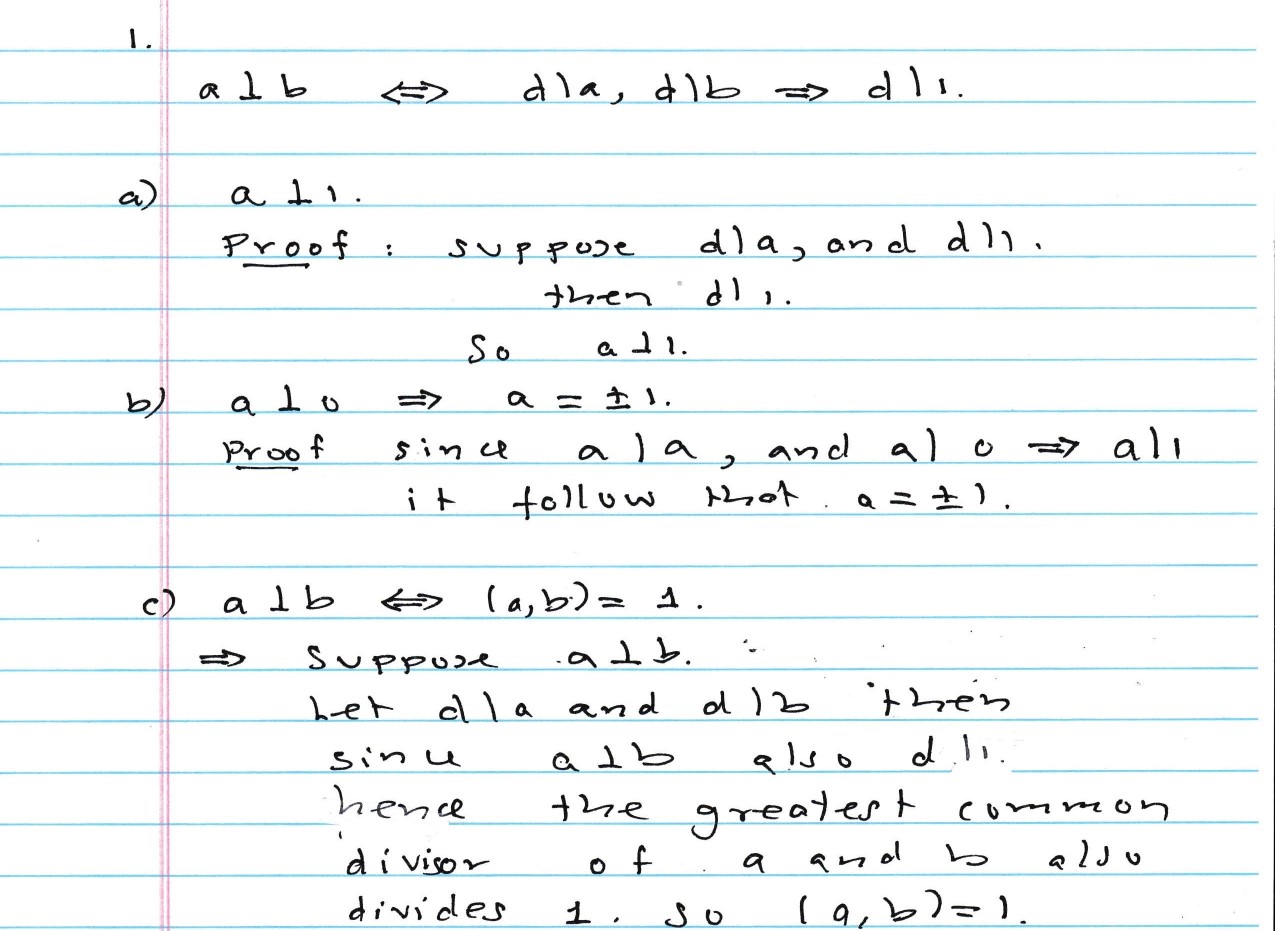 1.
a ⊥ b ⇔ d|a, d|b ⇒ d|1.
a) a ⊥ 1.
Proof : suppose d|a, and d|1.
then d|1.
So a ⊥ 1.
b) a ⊥ 0 ⇒ a = ±1.
Proof since a|a, and a|0 ⇒ a|1
it follow that a = ±1.
c) a ⊥ b ⇔ (a,b) = 1.
⇒ Suppose a ⊥ b.
Let d|a and d|b then
since a ⊥ b also d|1.
hence the greatest common
divisor of a and b also
divides 1. so (a,b)=1.